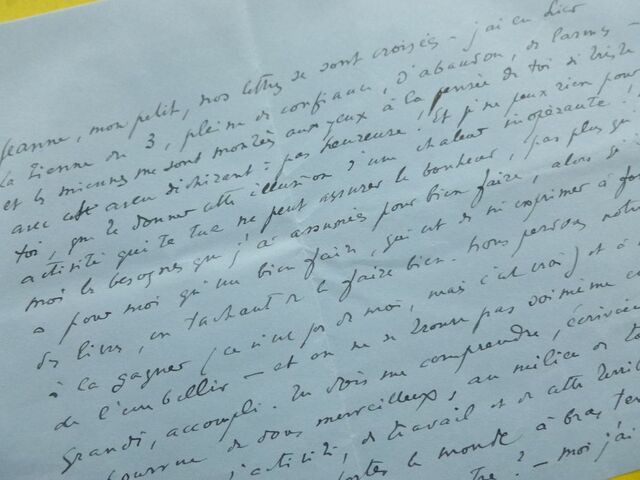 Jeanne, mon petit, nos lettres se sont croisées – j'ai eu hier
la tienne du 3, pleine de confiance, d'abandon, de larmes –
et les miennes me sont montées aux yeux à la pensée de toi si triste
avec cet aveu déchirant : pas heureuse ! Et je ne peux rien pour
toi, que te donner cette illusion d'une chaleur inopérante !
activité qui te tue ne peut assurer le bonheur, pas plus qu'
moi les besognes que j'ai assumées pour bien faire, alors
a pour moi qu'un bien faire, qui est de m'exprimer à
des livres, en tâchant de le faire bien. Nous perdons notre
à la gagner (ce n'est pas de moi, mais c'est vrai) et à
de l'embellir – et on ne se trouve pas soi-même
grandi, accompli. Tu dois me comprendre,
de dons merveilleux, au milieu de
activité, de travail et de cette
le monde à bras
? – moi j'ai